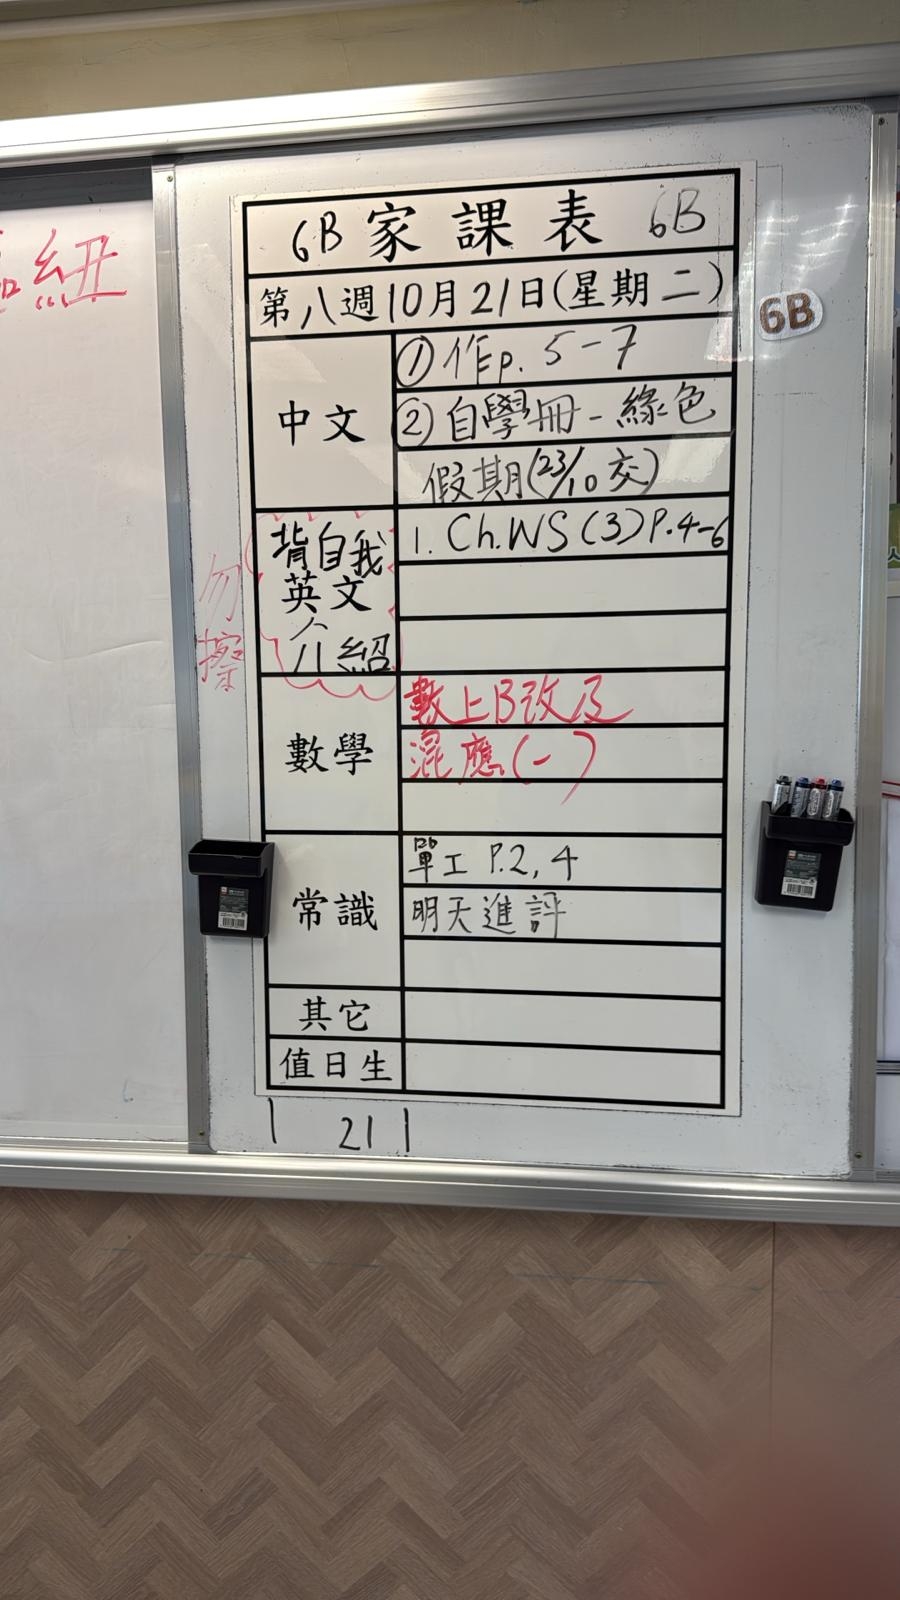 紐
6B 家課表 6B
第八週10月21日(星期二)
6B
中文
① 作p. 5-7
② 自學冊 - 綠色
假期(23/10 交)
背自我
英文
介紹
勿擦
1. Ch.WS (3) P.4-6
數學
數上B改及
混應(一)
常識
單工 P.2, 4
明天進評
其它
值日生
1 21 1